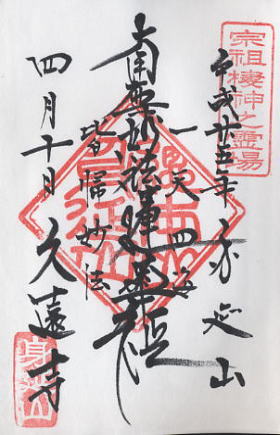 宗祖棲神之霊場
平成十五年 身延山
一天四海
南無妙法蓮華経
皆帰妙法
四月十日 久遠寺
身延山